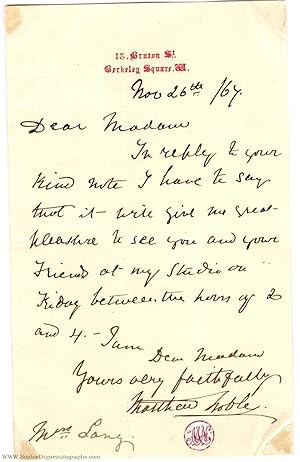 13. Bruton St.
Berkeley Square. W.
Nov 26th /67.
Dear Madam
In reply to your
kind note I have to say
that it will give me great
pleasure to see you and your
Friends at my Studio on
Friday between the hours of 2
and 4. - I am
Dear Madam
Yours very faithfully
Matthew Noble.
Mrs Lang.
www.SophieDupreautographs.com